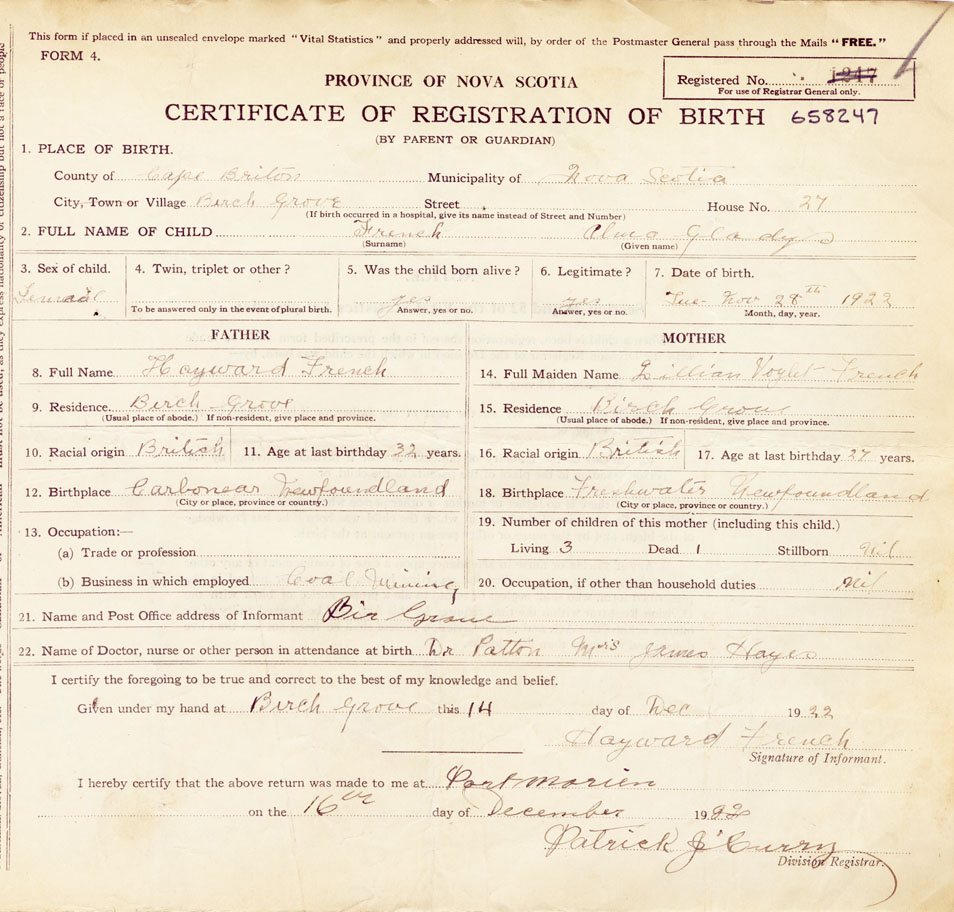 This form if placed in an unsealed envelope marked "Vital Statistics" and properly addressed will, by order of the Postmaster General pass through the Mails "FREE."
FORM 4.
PROVINCE OF NOVA SCOTIA
Registered No. 1247
For use of Registrar General only.
CERTIFICATE OF REGISTRATION OF BIRTH 658247
(BY PARENT OR GUARDIAN)
1. PLACE OF BIRTH.
County of Cape Briton Municipality of Nova Scotia
City, Town or Village Birch Grove Street House No. 27
(If birth occurred in a hospital, give its name instead of Street and Number)
2. FULL NAME OF CHILD French Alma Gladys
(Surname) (Given name)
3. Sex of child. 4. Twin, triplet or other? 5. Was the child born alive? 6. Legitimate? 7. Date of birth.
yes yes Tue- Nov 28th 1922
To be answered only in the event of plural birth. Answer, yes or no. Answer, yes or no. Month, day, year.
FATHER MOTHER
8. Full Name Hayward French 14. Full Maiden Name Lillian French
9. Residence Birch Grove 15. Residence Birch Grove
(Usual place of abode.) If non-resident, give place and province. (Usual place of abode.) If non-resident, give place and province.
10. Racial origin British 11. Age at last birthday 32 years. 16. Racial origin British 17. Age at last birthday 27 years.
12. Birthplace Carbonear Newfoundland 18. Birthplace Freshwater Newfoundland
(City or place, province or country.) (City or place, province or country.)
13. Occupation:— 19. Number of children of this mother (including this child.)
(a) Trade or profession Living 3 Dead 1 Stillborn Nil
(b) Business in which employed Coal Mining 20. Occupation, if other than household duties Nil
21. Name and Post Office address of Informant Bir Grove
22. Name of Doctor, nurse or other person in attendance at birth Dr Patton Mrs James Hayes
I certify the foregoing to be true and correct to the best of my knowledge and belief.
Given under my hand at Birch Grove this 14 day of Dec 1922
Hayward French
Signature of Informant.
I hereby certify that the above return was made to me at Port Morien
on the 16th day of December 1922
Patrick J Curry
Division Registrar.